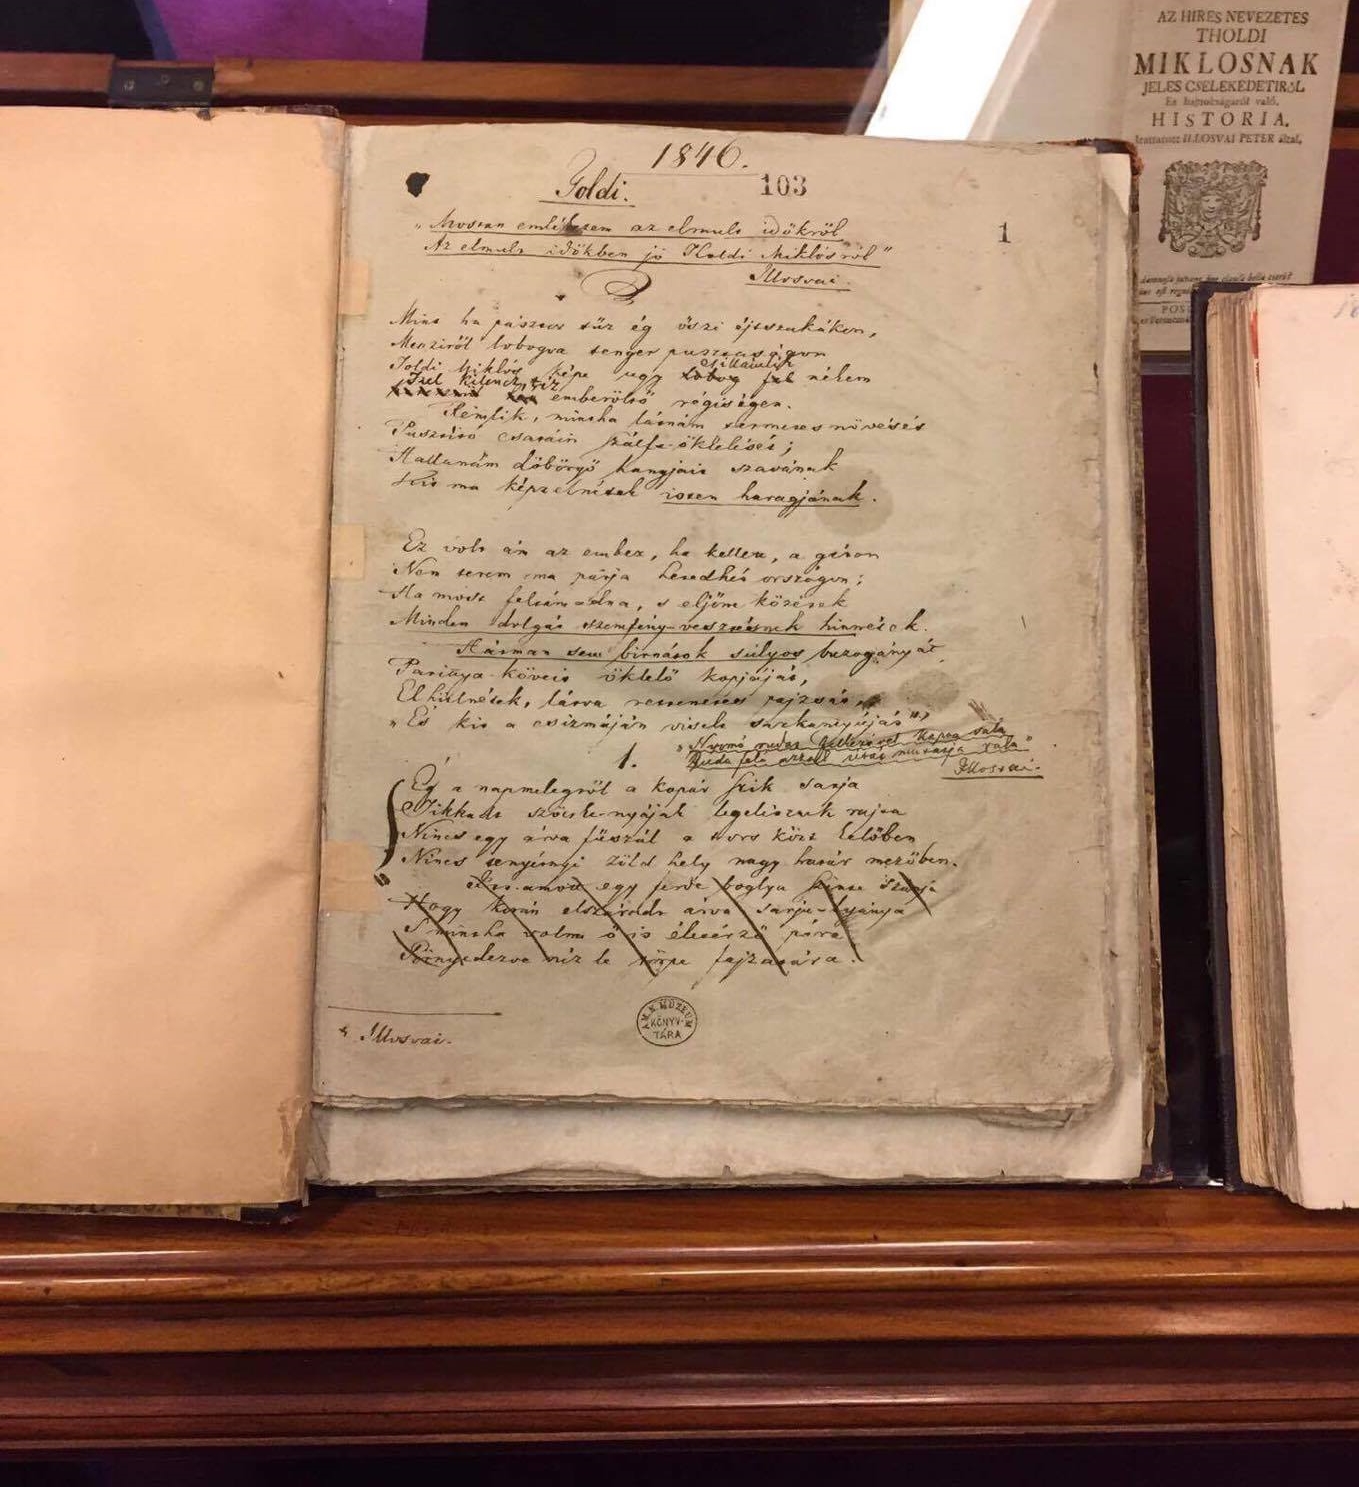 AZ HIRES NEVEZETES
THOLDI
MIKLOSNAK
JELES CSELEKEDETIRŐL
Es bajnokságáról való,
HISTORIA.
Irattatott ILLOSVAI PETER által,
1846.
Toldi.
103
1
„Mostan emlékezem az elmult időkről
Az elmult időkben jó Tholdi Miklósról"
Illosvai.
Mint ha pásztor tűz ég őszi éjtszakákon,
Messziről lobogva tenger pusztaságon
Toldi Miklós képe ugy csillámlik
lobog fel nékem
Izel kilencz, tiz
emberöltő régiségen.
Rémlik, mintha látnám termetes növését
Pusztító csatáin szálfa-öklelését;
Hallanám döbörgő hangjait szavának
Kit ma képzelnétek isten haragjának.
Ez volt ám az ember, ha kellett, a gáton
Nem terem ma párja hetedhét országon;
Ha most feltámadna, s eljőne közétek
Minden dolgát szemfény-vesztésnek hinnétek.
Hárman sem birnátok súlyos buzogányát,
Parittya-köveit öklelő kopjáját,
Elhülnétek, látva rettenetes pajzsát,
„És kit a csizmáján viselt sarkantyúját"
„Nyomó rudat félkezével kapta vala
Buda felé azzal utat mutatja vala"
Illosvai.
1.
Ég a napmelegtől a kopár szik sarja
Tikkadt szöcske-nyájak legelésznek rajta
Nincs egy árva fűszál a tors közt kelőben
Nincs tenyérnyi zöld hely nagy határ mezőben.
egy ferde boglya
Hogy korán elszáradt árva sarju-anyja
S mintha volna ő is élet-érző pára
néz le törpe fajzatára.
Illosvai.
A M. N. MÚZEUM
KÖNYV-
TÁRA